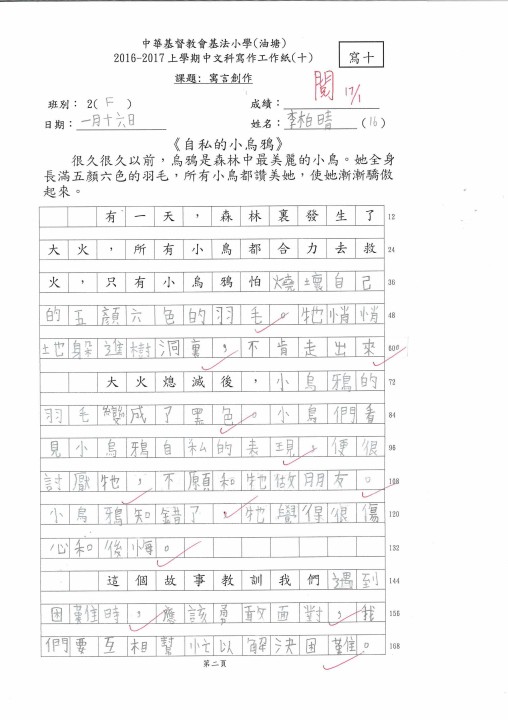 中華基督教會基法小學(油塘)
2016-2017上學期中文科寫作工作紙(十)
寫十
課題：寓言創作
閱 17/1
班別： 2( F ) 成績：
日期：一月十六日 姓名：李柏晴 (16)
《自私的小烏鴉》
很久很久以前，烏鴉是森林中最美麗的小鳥。她全身
長滿五顏六色的羽毛，所有小鳥都讚美她，使她漸漸驕傲
起來。
有一天，森林裏發生了 12
大火，所有小鳥都合力去救 24
火，只有小烏鴉怕燒壞自己 36
的五顏六色的羽毛。牠悄悄 48
地躲進樹洞裏，不肯走出來。 60
大火熄滅後，小烏鴉的 72
羽毛變成了黑色。小鳥們看 84
見小烏鴉自私的表現，便很 96
討厭牠，不願和牠做朋友。 108
小烏鴉知錯了，牠覺得很傷 120
心和後悔。 132
這個故事教訓我們遇到 144
困難時，應該勇敢面對，我 156
們要互相幫忙以解決困難。 168
第二頁